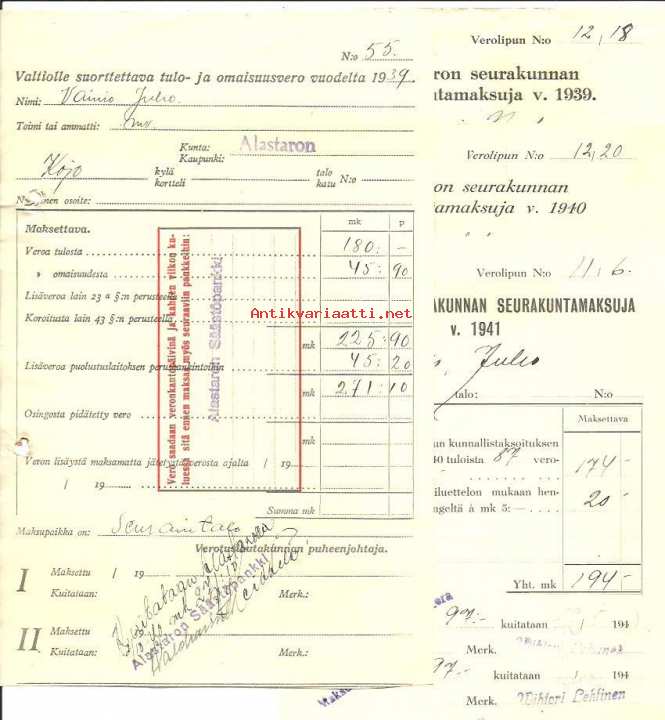 N:o 55.
Valtiolle suoritettava tulo- ja omaisuusvero vuodelta 1939.
Nimi: Vainio Juho.
Toimi tai ammatti:
Kunta: Alastaron
Kaupunki:
Kojo kylä talo N:o
kortteli katu
osoite:
mk p
Maksettava.
Veroa tulosta 180: –
» omaisuudesta 45: 90
Lisäveroa lain 23 a §:n perusteella
Koroitusta lain 43 §:n perusteella
mk 225: 90
Lisäveroa puolustuslaitoksen perushankintoihin 45: 20
mk 271: 10
Osingosta pidätetty vero
mk
Veron lisäystä maksamatta jätetystä verosta ajalta / 19
/ 19 mk
Summa mk
Vero saadaan veronkantopäivinä ja kahden viikon ku-
luessa sitä ennen maksaa myös seuraaviin pankkeihin:
Alastaron Säästöpankki
Maksupaikka on: Seurantalo
Verotuslautakunnan puheenjohtaja.
I Maksettu / 19
Kuitataan: Merk.:
II Maksettu
Kuitataan: Merk.:
Alastaron Säästöpankki
Antikvariaatti.net
Verolipun N:o 12,18
ron seurakunnan
ntamaksuja v. 1939.
Verolipun N:o 12,20
on seurakunnan
tamaksuja v. 1940
Verolipun N:o 11,6.
AKUNNAN SEURAKUNTAMAKSUJA
v. 1941
Juho
talo: N:o
Maksettava
an kunnallistaksoituksen
40 tuloista 87 vero-
174-
iluettelon mukaan hen-
ngeltä à mk 5:— 20-
Yht. mk 194-
97.- kuitataan 194
Merk. Lehtinen
97.- kuitataan 194
Merk. Wihtori Lehtinen